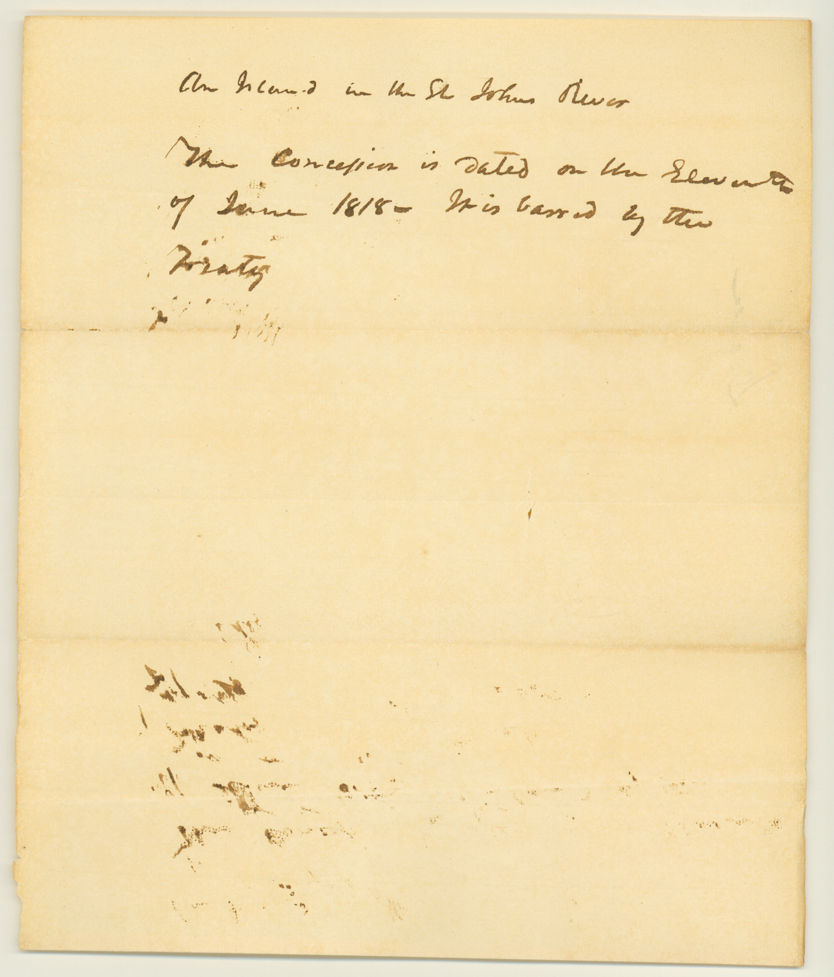 An Island in the St Johns River
The Concession is dated on the Eleventh
of June 1818 - It is barred by the
Treaty